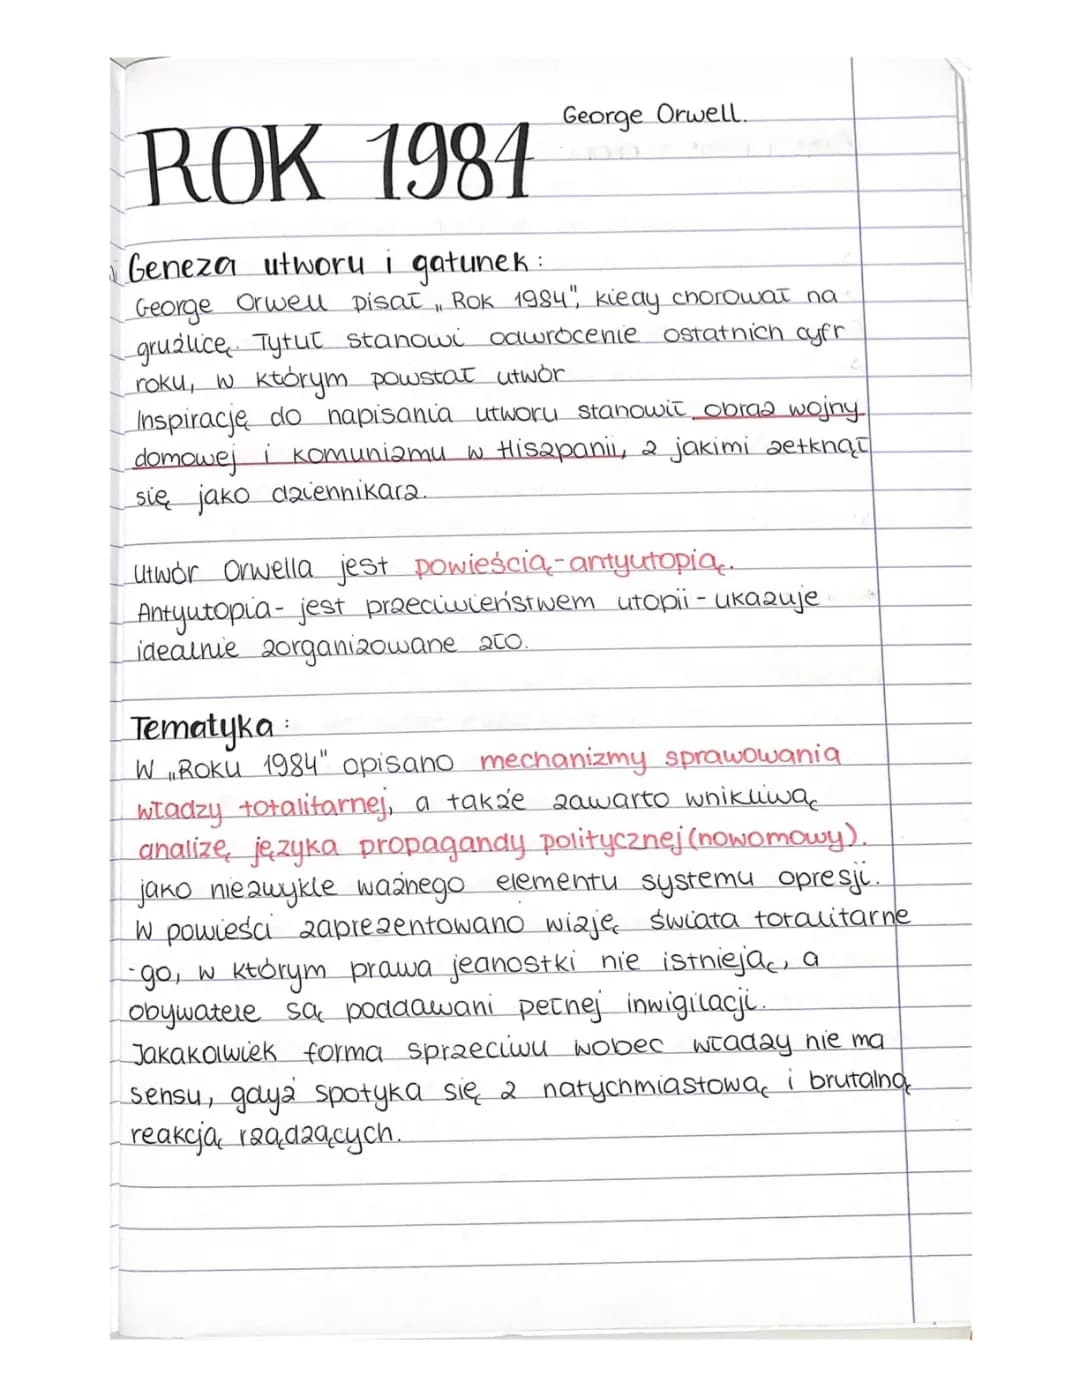 George Orwell.
ROK 1984
Geneza utworu i gatunek:
George Orwell pisał „Rok 1984", kiedy chorował na
gruźlicę. Tytuł stanowi odwrócenie ostatnich cyfr
roku, w którym powstał utwór
Inspirację do napisania utworu stanowił obraz wojny
domowej i komunizmu w Hiszpanii, z jakimi zetknął
się jako dziennikarz.
Utwór Orwella jest powieścią-antyutopią.
Antyutopia- jest przeciwieństwem utopii - ukazuje
idealnie zorganizowane zło.
Tematyka:
W „Roku 1984" opisano mechanizmy sprawowania
władzy totalitarnej, a także zawarto wnikliwą
analizę języka propagandy politycznej (nowomowy).
jako niezwykle ważnego elementu systemu opresji.
W powieści zaprezentowano wizję świata totalitarne
-go, w którym prawa jednostki nie istnieją, a
obywatele są poddawani pełnej inwigilacji.
Jakakolwiek forma sprzeciwu wobec władzy nie ma
sensu, gdyż spotyka się z natychmiastową i brutalną
reakcją rządzących.